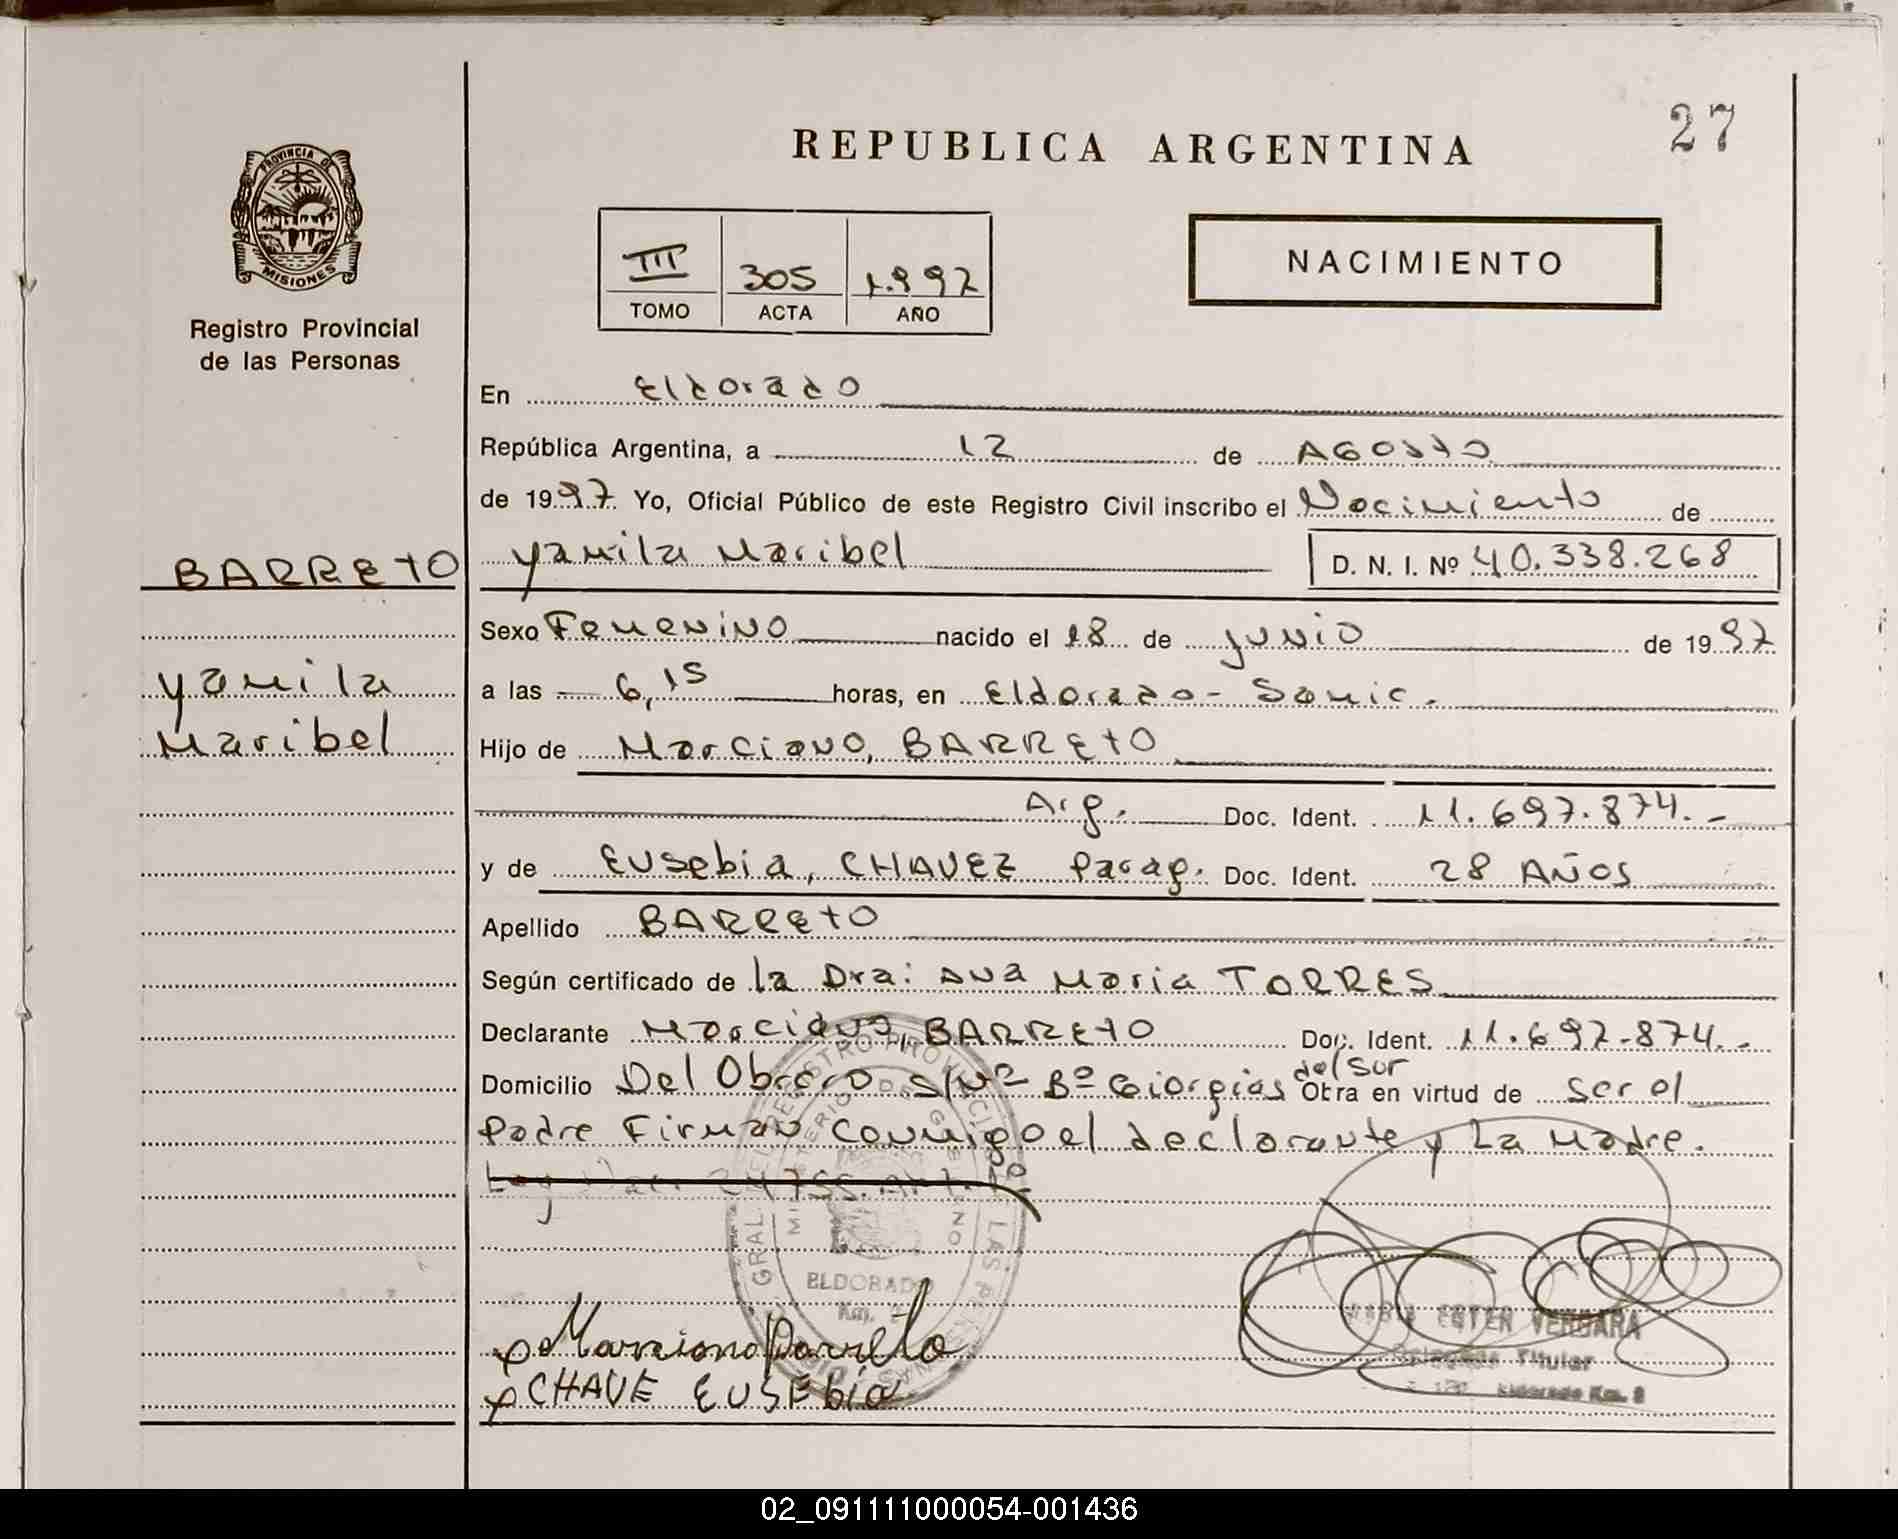 27
REPUBLICA ARGENTINA
PROVINCIA DE
MISIONES
Registro Provincial
de las Personas
III 305 1.997
TOMO ACTA AÑO
NACIMIENTO
En Eldorado
República Argentina, a 12 de AGOSTO
de 1997 Yo, Oficial Público de este Registro Civil inscribo el Nacimiento de
BARRETO Yamila Maribel D. N. I. Nº 40.338.268
Sexo Femenino nacido el 18 de junio de 1997
Yamila a las 6,15 horas, en Eldorado - Samic.
Maribel Hijo de Marciano, BARRETO
Arg. Doc. Ident. 11.697.874.-
y de Eusebia, CHAVEZ Parag. Doc. Ident. 28 AÑOS
Apellido BARRETO
Según certificado de la Dra: Ana Maria TORRES
Declarante Marciano, BARRETO Doc. Ident. 11.697.874.-
Domicilio Del Obrero S/Nº Bº Giorgias del Sur Otra en virtud de ser el
Padre Firman Conmigo el declarante y La Madre.
ELDORADO
Marciano Barreto
CHAVE EUSEbia
ESTER VERGARA
Titular
Eldorado Km. 2
02_091111000054-001436